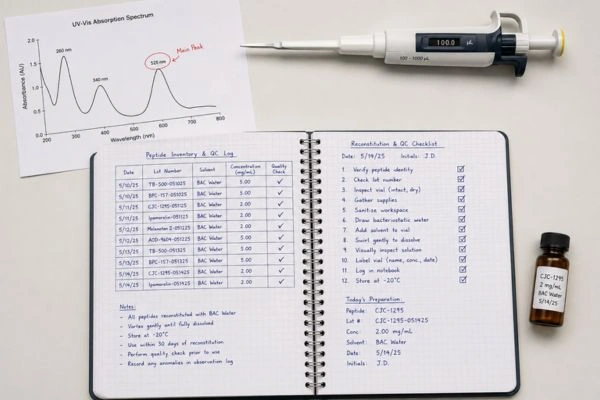 UV-Vis Absorption Spectrum
Absorbance (AU)
2.0
1.5
1.0
0.5
0.0
260 nm
340 nm
525 nm
Main Peak
200
300
400
500
600
700
800
Wavelength (nm)
100.0 µL
100 - 1000 µL
Peptide Inventory & QC Log
Date Lot Number Solvent Concentration (mg/mL) Quality Check
5/10/25 TB-500-051025 BAC Water 5.00 ✓
5/10/25 BPC-157-051025 BAC Water 5.00 ✓
5/11/25 CJC-1295-051125 BAC Water 2.00 ✓
5/11/25 Ipamorelin-051125 BAC Water 2.00 ✓
5/12/25 Melanotan II-051225 BAC Water 2.00 ✓
5/12/25 AOD-9604-051225 BAC Water 5.00 ✓
5/13/25 TB-500-051325 BAC Water 5.00 ✓
5/13/25 BPC-157-051325 BAC Water 5.00 ✓
5/14/25 CJC-1295-051425 BAC Water 2.00 ✓
5/14/25 Ipamorelin-051425 BAC Water 2.00 ✓
Notes:
- All peptides reconstituted with BAC Water
- Vortex gently until fully dissolved
- Store at -20°C
- Use within 30 days of reconstitution
- Perform quality check prior to use
- Record any anomalies in observation log
Reconstitution & QC Checklist
Date: 5/14/25 Initials: J.D.
1. Verify peptide identity ☑
2. Check lot number ☑
3. Inspect vial (intact, dry) ☑
4. Gather supplies ☑
5. Sanitize workspace ☑
6. Draw bacteriostatic water ☑
7. Add solvent to vial ☑
8. Swirl gently to dissolve ☑
9. Visually inspect solution ☑
10. Label vial (name, conc., date) ☑
11. Log in notebook ☑
12. Store at -20°C ☑
Today's Preparation:
Peptide: CJC-1295
Lot #: CJC-1295-051425
Conc: 2.00 mg/mL
Solvent: BAC Water
Date: 5/14/25
Initials: J.D.
CJC-1295
2 mg/mL
BAC Water
5/14/25